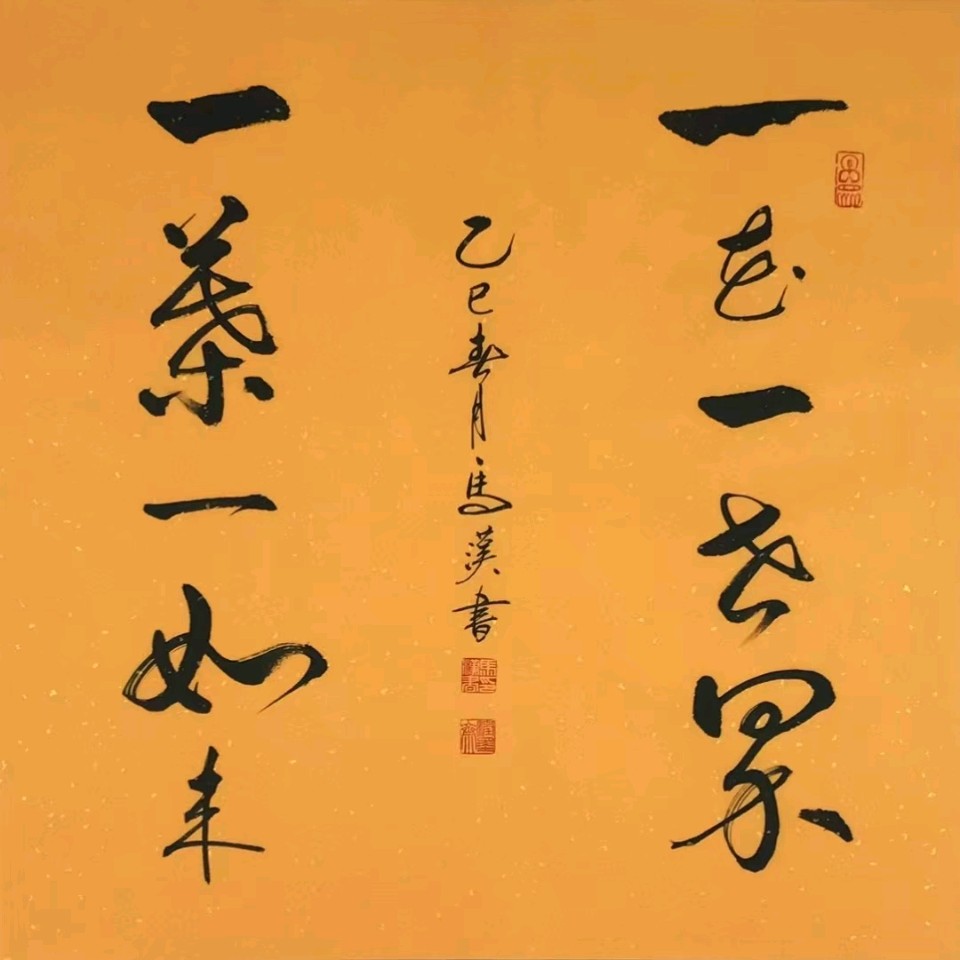 一花一世界
一葉一如来
乙巳春月馬漢書